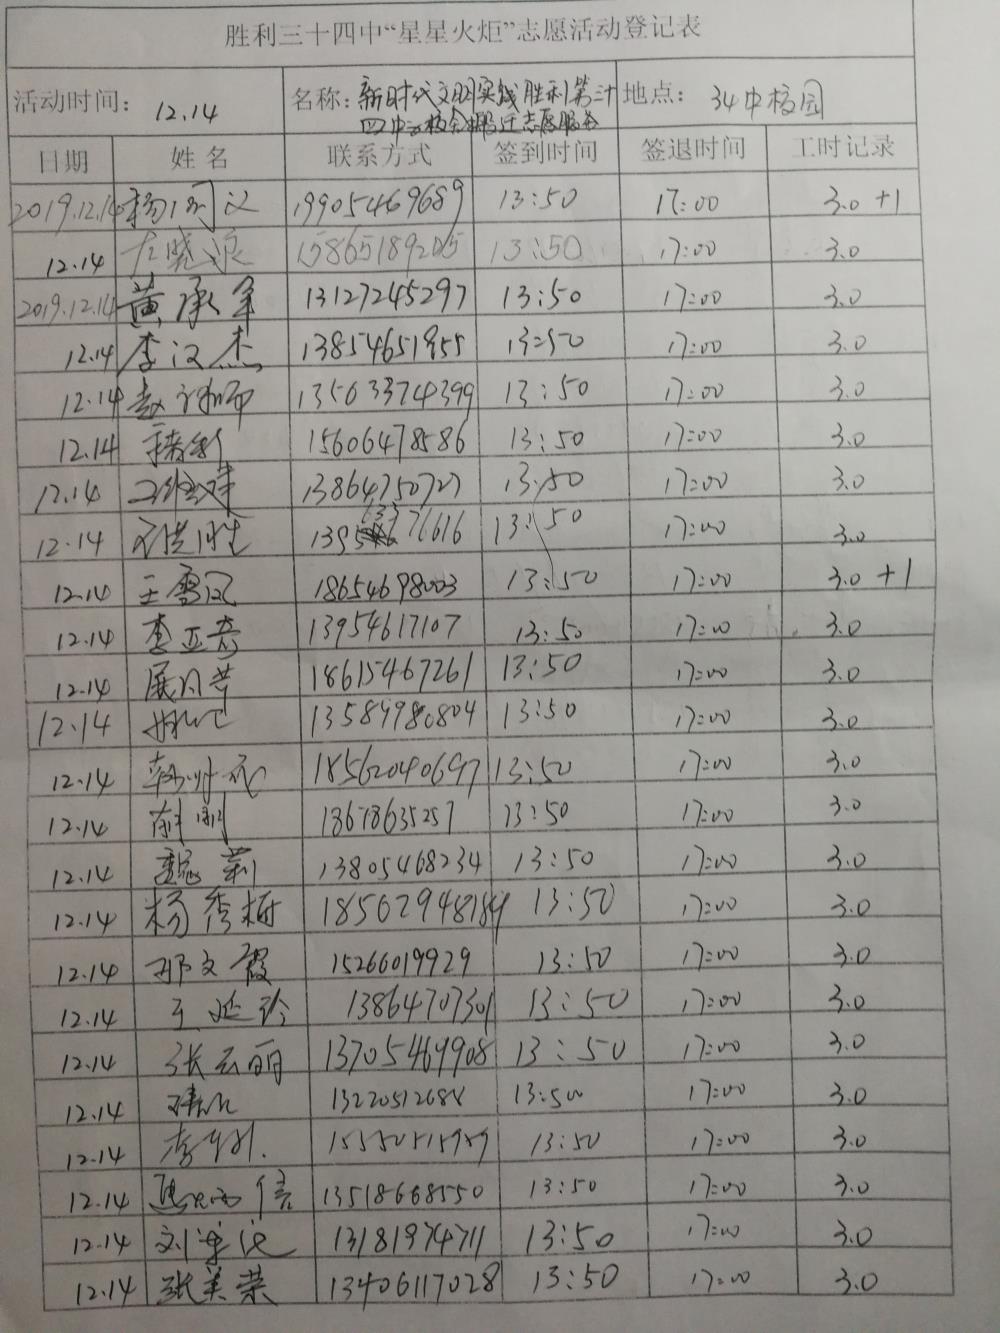 胜利三十四中“星星火炬”志愿活动登记表
活动时间: 12.14 名称: 新时代文明实践胜利第卅 地点: 34中校园
四中 搬迁志愿服务
日期 姓名 联系方式 签到时间 签退时间 工时记录
2019.12.14 杨 19905469689 13:50 17:00 3.0 +1
12.14 左晓 15865189205 13:50 17:00 3.0
2019.12.14 黄承军 13127245297 13:50 17:00 3.0
12.14 李汉杰 13854651955 13:50 17:00 3.0
12.14 赵 13563374399 13:50 17:00 3.0
12.14 15606478586 13:50 17:00 3.0
12.14 13864750727 13:50 17:00 3.0
12.14 13:50 17:00 3.0
12.14 王雪 18654698003 13:50 17:00 3.0 +1
12.14 李亚奇 13954617107 13:50 17:00 3.0
12.14 展 18615467261 13:50 17:00 3.0
12.14 13589980804 13:50 17:00 3.0
12.14 18562040697 13:50 17:00 3.0
12.14 18678635257 13:50 17:00 3.0
12.14 魏莉 13805468234 13:50 17:00 3.0
12.14 杨秀梅 13:50 17:00 3.0
12.14 邢文霞 15266019929 13:50 17:00 3.0
12.14 王延玲 13864707301 13:50 17:00 3.0
12.14 张云丽 13705469908 13:50 17:00 3.0
12.14 13:50 17:00 3.0
12.14 李 13:50 17:00 3.0
12.14 13518668550 13:50 17:00 3.0
12.14 刘 13181974711 13:50 17:00 3.0
12.14 张美荣 13406117028 13:50 17:00 3.0